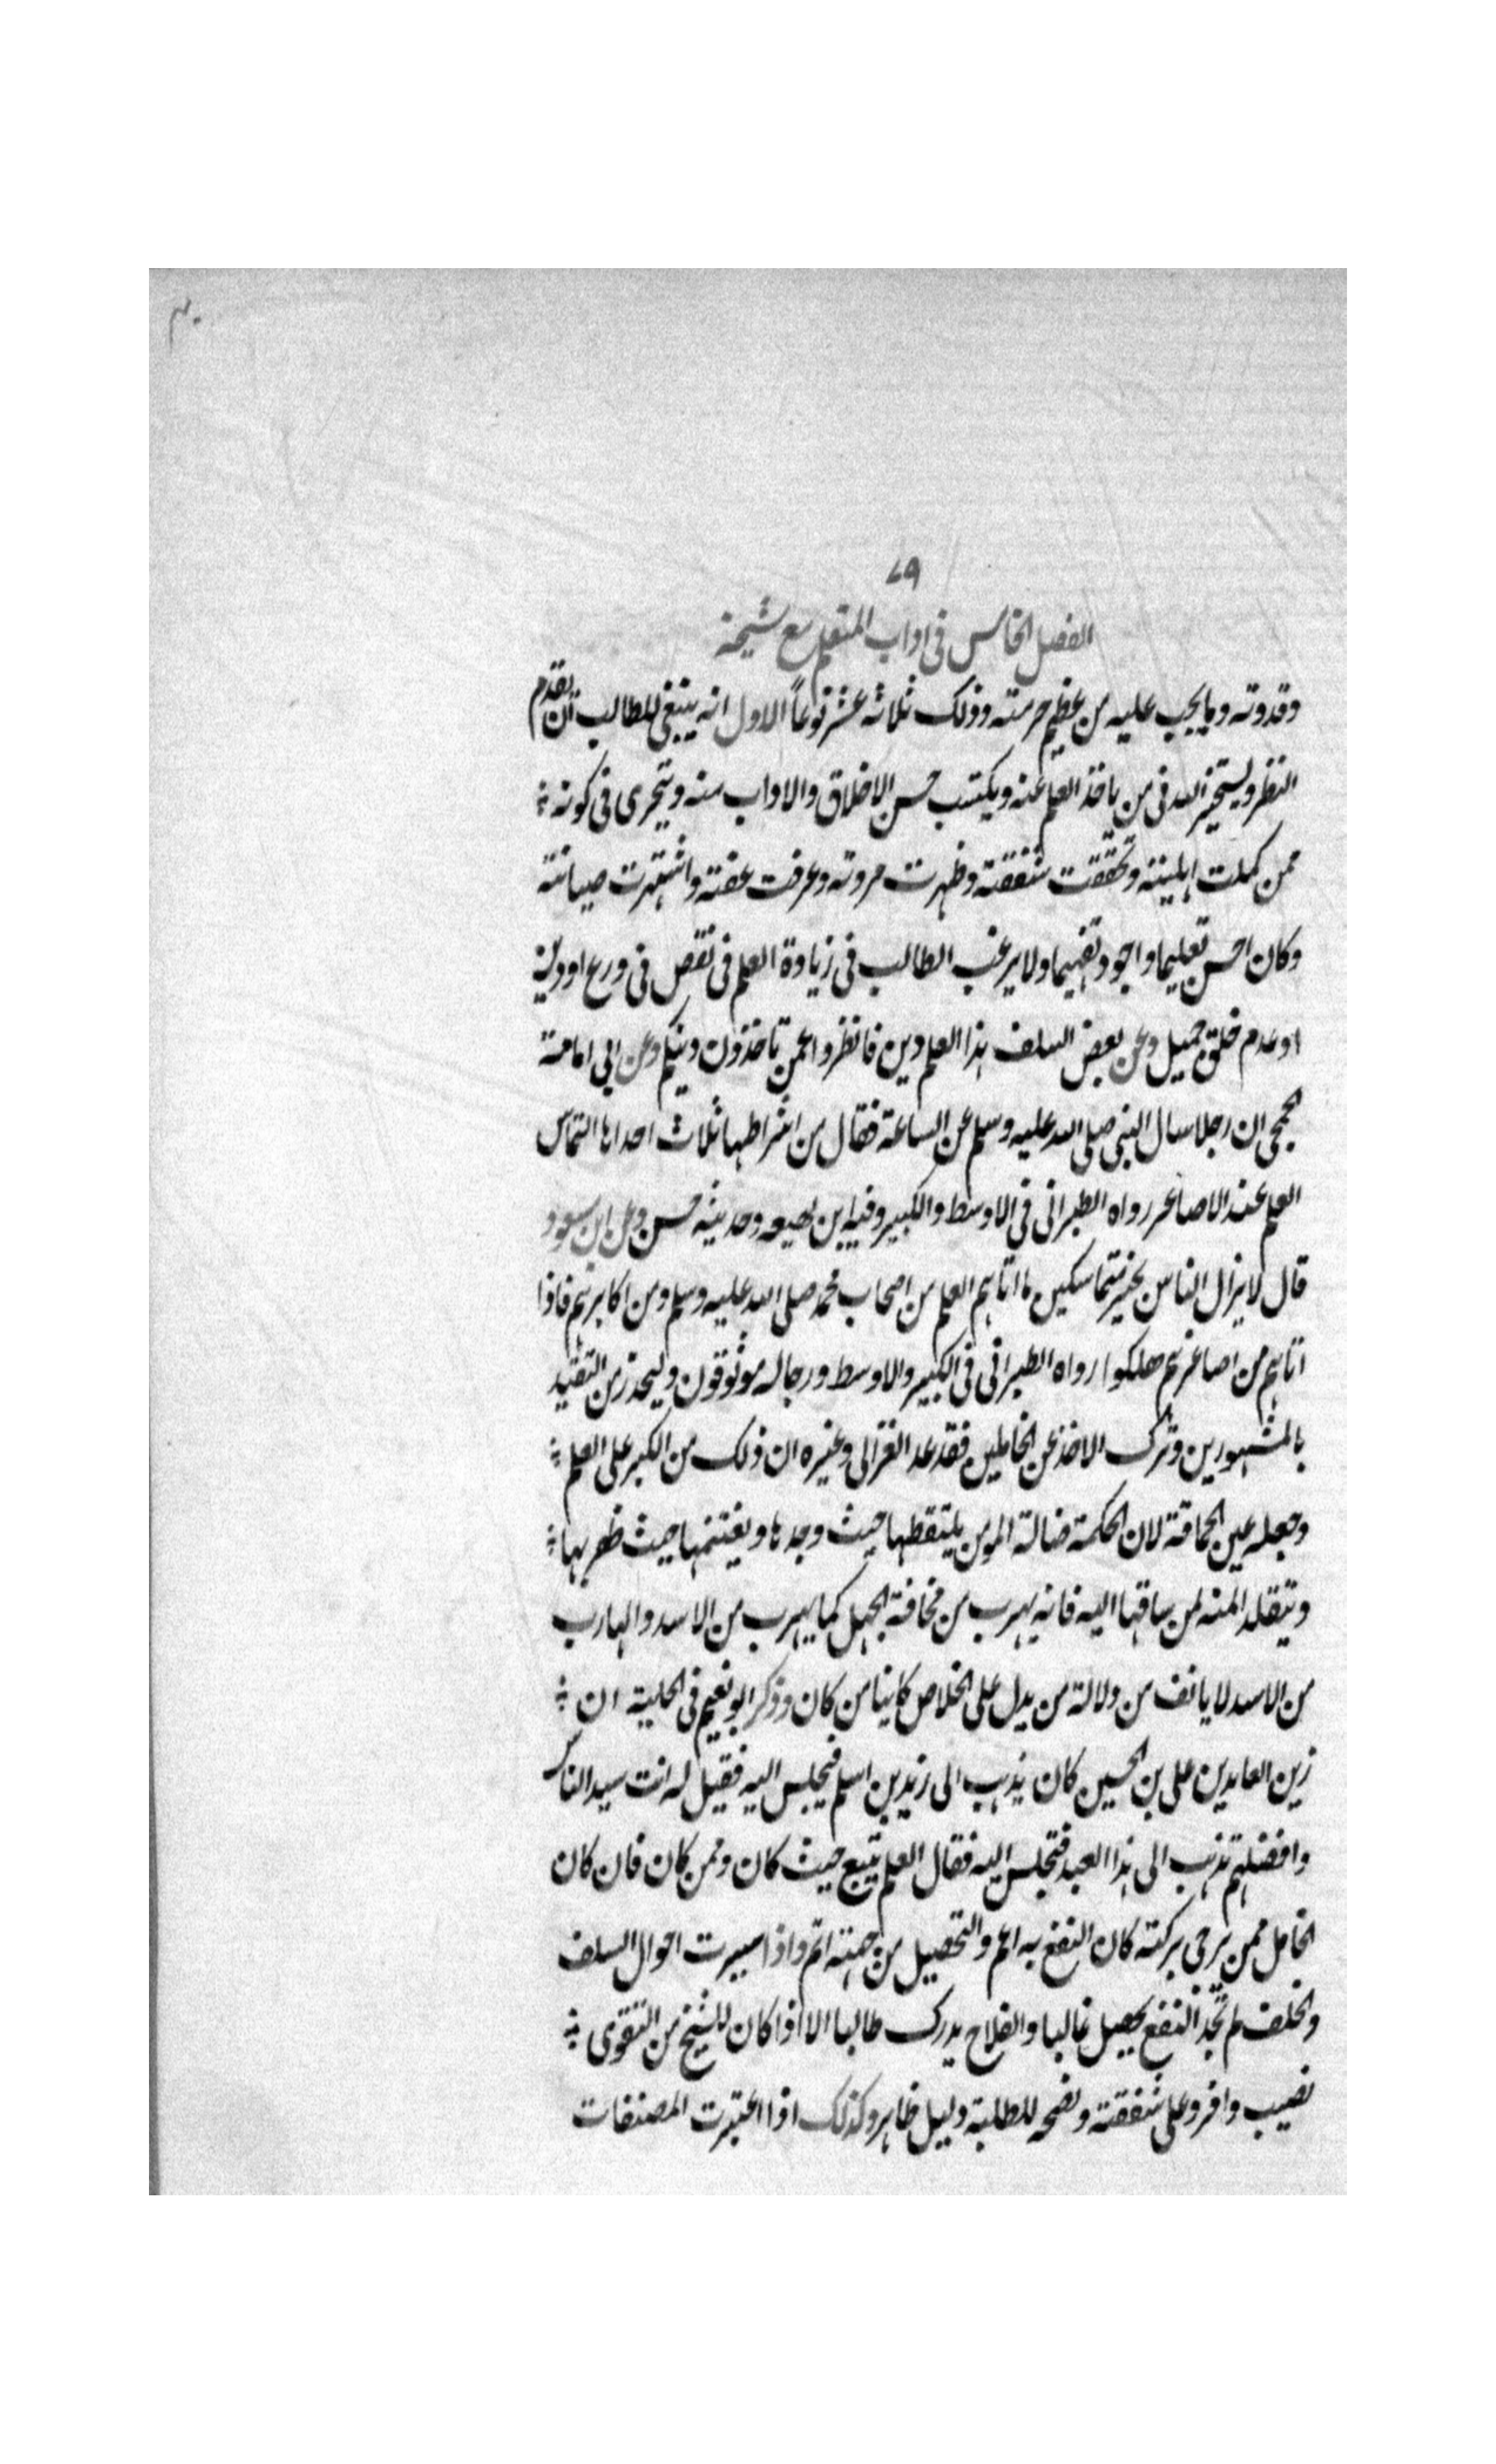 ٤٠
٧٩
الفصل الخامس فى اداب المتعلم مع شيخه
وقدوته وما يجب عليه من عظيم حرمته وذلك ثلاثه عشر نوعاً الاول انه ينبغى للطالب ان يقدم
النظر ويستخير الله فى من ياخذ العلم عنه ويكتسب حسن الاخلاق والاداب منه ويتحرى فى كونه
ممن كملت اهليته وتحققت شفقته وظهرت مروته وعرفت عفته واشتهرت صيانته
وكان احسن تعليما واجود تفهيما ولا يرغب الطالب فى زيادة العلم فى نقص فى ورع او دين
او عدم خلق جميل وعن بعض السلف هذا العلم دين فانظروا عمن تاخذون دينكم وعن ابى امامة
الجمحى ان رجلا سال النبى صلى الله عليه وسلم عن الساعة فقال من اشراطها ثلاث احداها التماس
العلم عند الاصاغر رواه الطبرانى فى الاوسط والكبير وفيه ابن لهيعه وحديثه حسن وعن ابن مسعود
قال لا يزال الناس بخير متماسكين ما اتاهم العلم من اصحاب محمد صلى الله عليه وسلم ومن اكابرهم فاذا
اتاهم من اصاغرهم هلكوا رواه الطبرانى فى الكبير والاوسط ورجاله موثوقون وليحذر من التقيد
بالمشهورين وترك الاخذ عن الخاملين فقد عد الغزالى وغيره ان ذلك من الكبر على العلم
وجعله عين الحماقة لان الحكمة ضالة المومن يلتقطها حيث وجدها ويغتنمها حيث ظفر بها
ويتقلد المنه لمن ساقها اليه فانه يهرب من مخافة الجهل كما يهرب من الاسد والهارب
من الاسد لا يانف من دلالة من يدل على الخلاص كاينا من كان وذكر ابو نعيم فى الحلية ان
زين العابدين على بن الحسين كان يذهب الى زيد بن اسلم فيجلس اليه فقيل له انت سيد الناس
وافضلهم تذهب الى هذا العبد فتجلس اليه فقال العلم يتبع حيث كان وممن كان فان كان
الخامل ممن ترجى بركته كان النفع به اعم والتحصيل من جهته اتم واذا سبرت احوال السلف
والخلف لم تجد النفع يحصل غالبا والفلاح يدرك طالبا الا اذا كان للشيخ من التقوى
نصيب وافر وعلى شفقته ونصحه للطلبة دليل ظاهر وكذلك اذا اعتبرت المصنفات